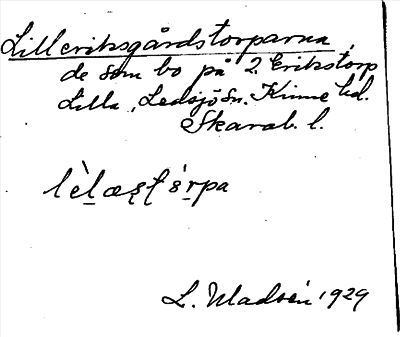 Lilleriksgårdstorparna,
de som bo på 2. Erikstorp
Lilla, Ledsjö sn. Kinne hd.
Skarab. l.
L. Madsén 1929